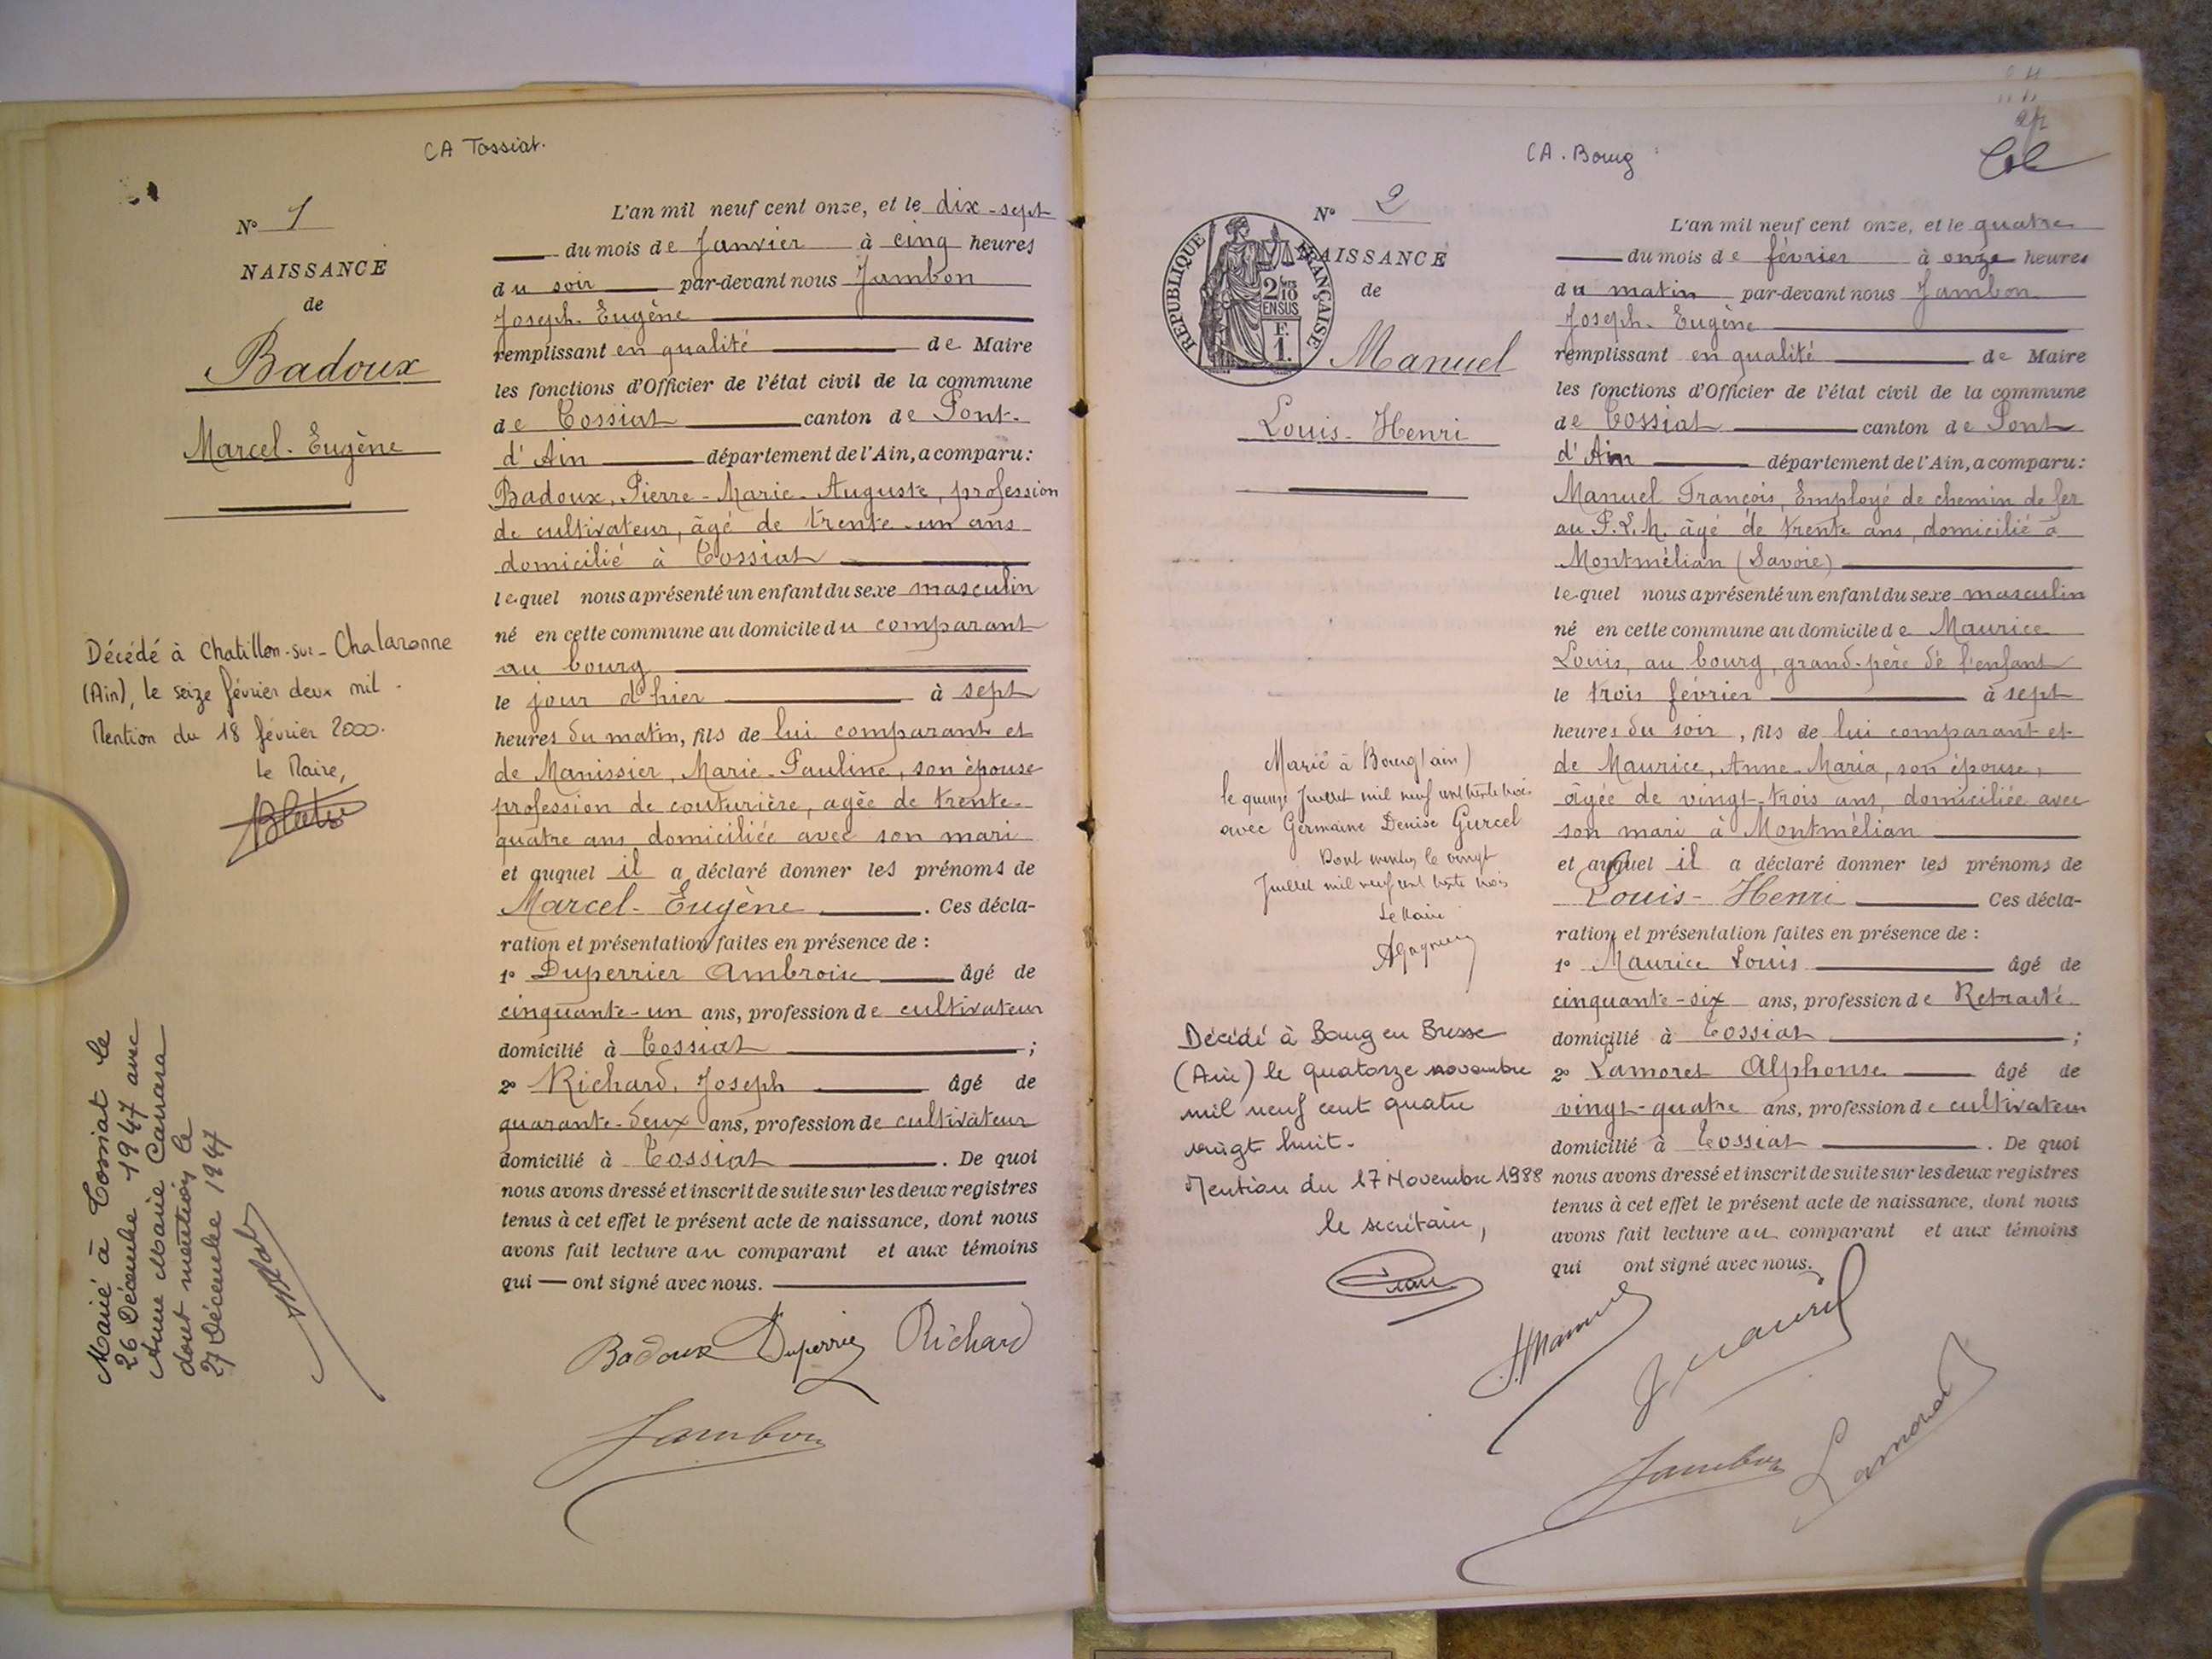 CA Tossiat.
N° 1
NAISSANCE
de
Badoux
Marcel-Eugène
Décédé à Chatillon-sur-Chalaronne
(Ain), le seize février deux mil.
Mention du 18 février 2000.
Le Maire,
Marié à Tossiat le
26 Décembre 1947 avec
Anne Marie
dont mention le
27 Décembre 1947
L'an mil neuf cent onze, et le dix-sept
du mois de Janvier à cinq heures
du soir par-devant nous Jambon
Joseph-Eugène
remplissant en qualité de Maire
les fonctions d'Officier de l'état civil de la commune
de Tossiat canton de Pont-
d'Ain département de l'Ain, a comparu:
Badoux, Pierre-Marie-Auguste, profession
de cultivateur, âgé de trente-un ans
domicilié à Tossiat
lequel nous a présenté un enfant du sexe masculin
né en cette commune au domicile du comparant
au bourg
le jour d'hier à sept
heures du matin, fils de lui comparant et
de Manissier, Marie-Pauline, son épouse
profession de couturière, agée de trente-
quatre ans domiciliée avec son mari
et auquel il a déclaré donner les prénoms de
Marcel-Eugène. Ces décla-
ration et présentation faites en présence de :
1° Duperrier Ambroise âgé de
cinquante-un ans, profession de cultivateur
domicilié à Tossiat ;
2° Richard, Joseph âgé de
quarante-deux ans, profession de cultivateur
domicilié à Tossiat. De quoi
nous avons dressé et inscrit de suite sur les deux registres
tenus à cet effet le présent acte de naissance, dont nous
avons fait lecture au comparant et aux témoins
qui — ont signé avec nous.
Badoux Duperrier Richard
Jambon
CA. Bourg
N° 2
NAISSANCE
de
REPUBLIQUE FRANÇAISE
2/10
EN SUS
F.
1.
Manuel
Louis-Henri
Marié à Bourg (ain)
le quinze Juillet mil neuf cent trente trois
avec Germaine Denise Gurcel
Dont mention le vingt
Juillet mil neuf cent trente trois
Le Maire
Décédé à Bourg en Bresse
(Ain) le quatorze novembre
mil neuf cent quatre
vingt huit.
Mention du 17 Novembre 1988
le secrétaire,
L'an mil neuf cent onze, et le quatre
du mois de février à onze heures
du matin par-devant nous Jambon
Joseph-Eugène
remplissant en qualité de Maire
les fonctions d'Officier de l'état civil de la commune
de Tossiat canton de Pont
d'Ain département de l'Ain, a comparu:
Manuel François, Employé de chemin de fer
au P.L.M. âgé de trente ans, domicilié à
Montmélian (Savoie)
lequel nous a présenté un enfant du sexe masculin
né en cette commune au domicile de Maurice
Louis, au bourg, grand-père de l'enfant
le trois février à sept
heures du soir, fils de lui comparant et
de Maurice, Anne-Maria, son épouse,
âgée de vingt-trois ans, domiciliée avec
son mari à Montmélian
et auquel il a déclaré donner les prénoms de
Louis-Henri Ces décla-
ration et présentation faites en présence de :
1° Maurice Louis âgé de
cinquante-six ans, profession de Retraité
domicilié à Tossiat ;
2° Lamoret Alphonse âgé de
vingt-quatre ans, profession de cultivateur
domicilié à Tossiat. De quoi
nous avons dressé et inscrit de suite sur les deux registres
tenus à cet effet le présent acte de naissance, dont nous
avons fait lecture au comparant et aux témoins
qui ont signé avec nous.
Jambon